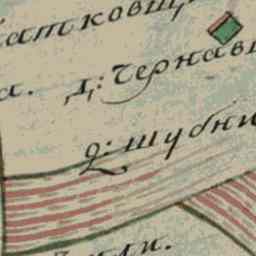 атковщ
а. д: Чернав
д: шубни